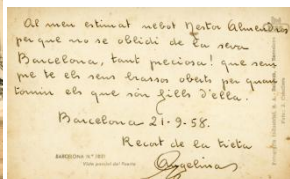 Al meu estimat nebot Nestor Almendros
per que no se oblidi de la seva
Barcelona, tant preciosa! que sem
pre te els seus brassos oberts per quan
tornin els que són fills d'ella.
Barcelona 21-9-58.
Recort de la tieta
Angelina
BARCELONA N.º 1021
Vista parcial del Puerto